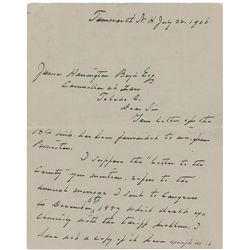 Tamworth N. H. July 22. 1906
James Harrington Boyd Esq
Counsellor at Law
Toledo O.
Dear Sir
Your letter of the
18th inst has been forwarded to me from
Princeton.
I suppose the "Letter to the
Country" you mention, refers to the
annual message I sent to Congress
in December, 1887 which dealt ex-
clusively with the tariff problem. I
have not a copy of it here except as it